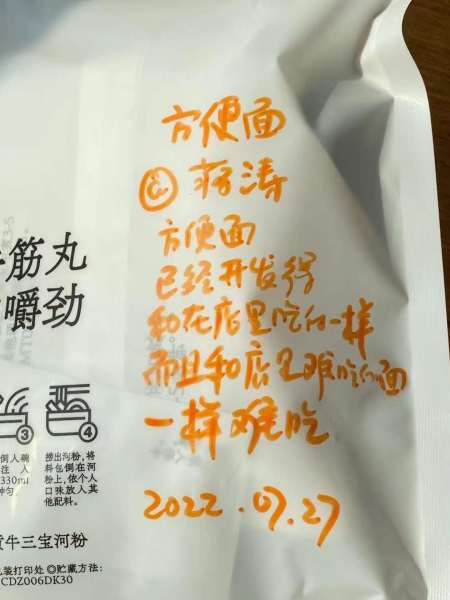 方便面
@ 杨涛
方便面
已经开发得
和在店里吃的一样
而且和店里难吃的面
一样难吃
2022.07.27
筋丸
嚼劲
3
4
倒入碗
注入
330ml
钟匀。
捞出沥粉,将
料包倒在河
粉上,依个人
口味放入其
他配料。
牛三宝河粉
装打印处 ◎贮藏方法:
CDZ006DK30